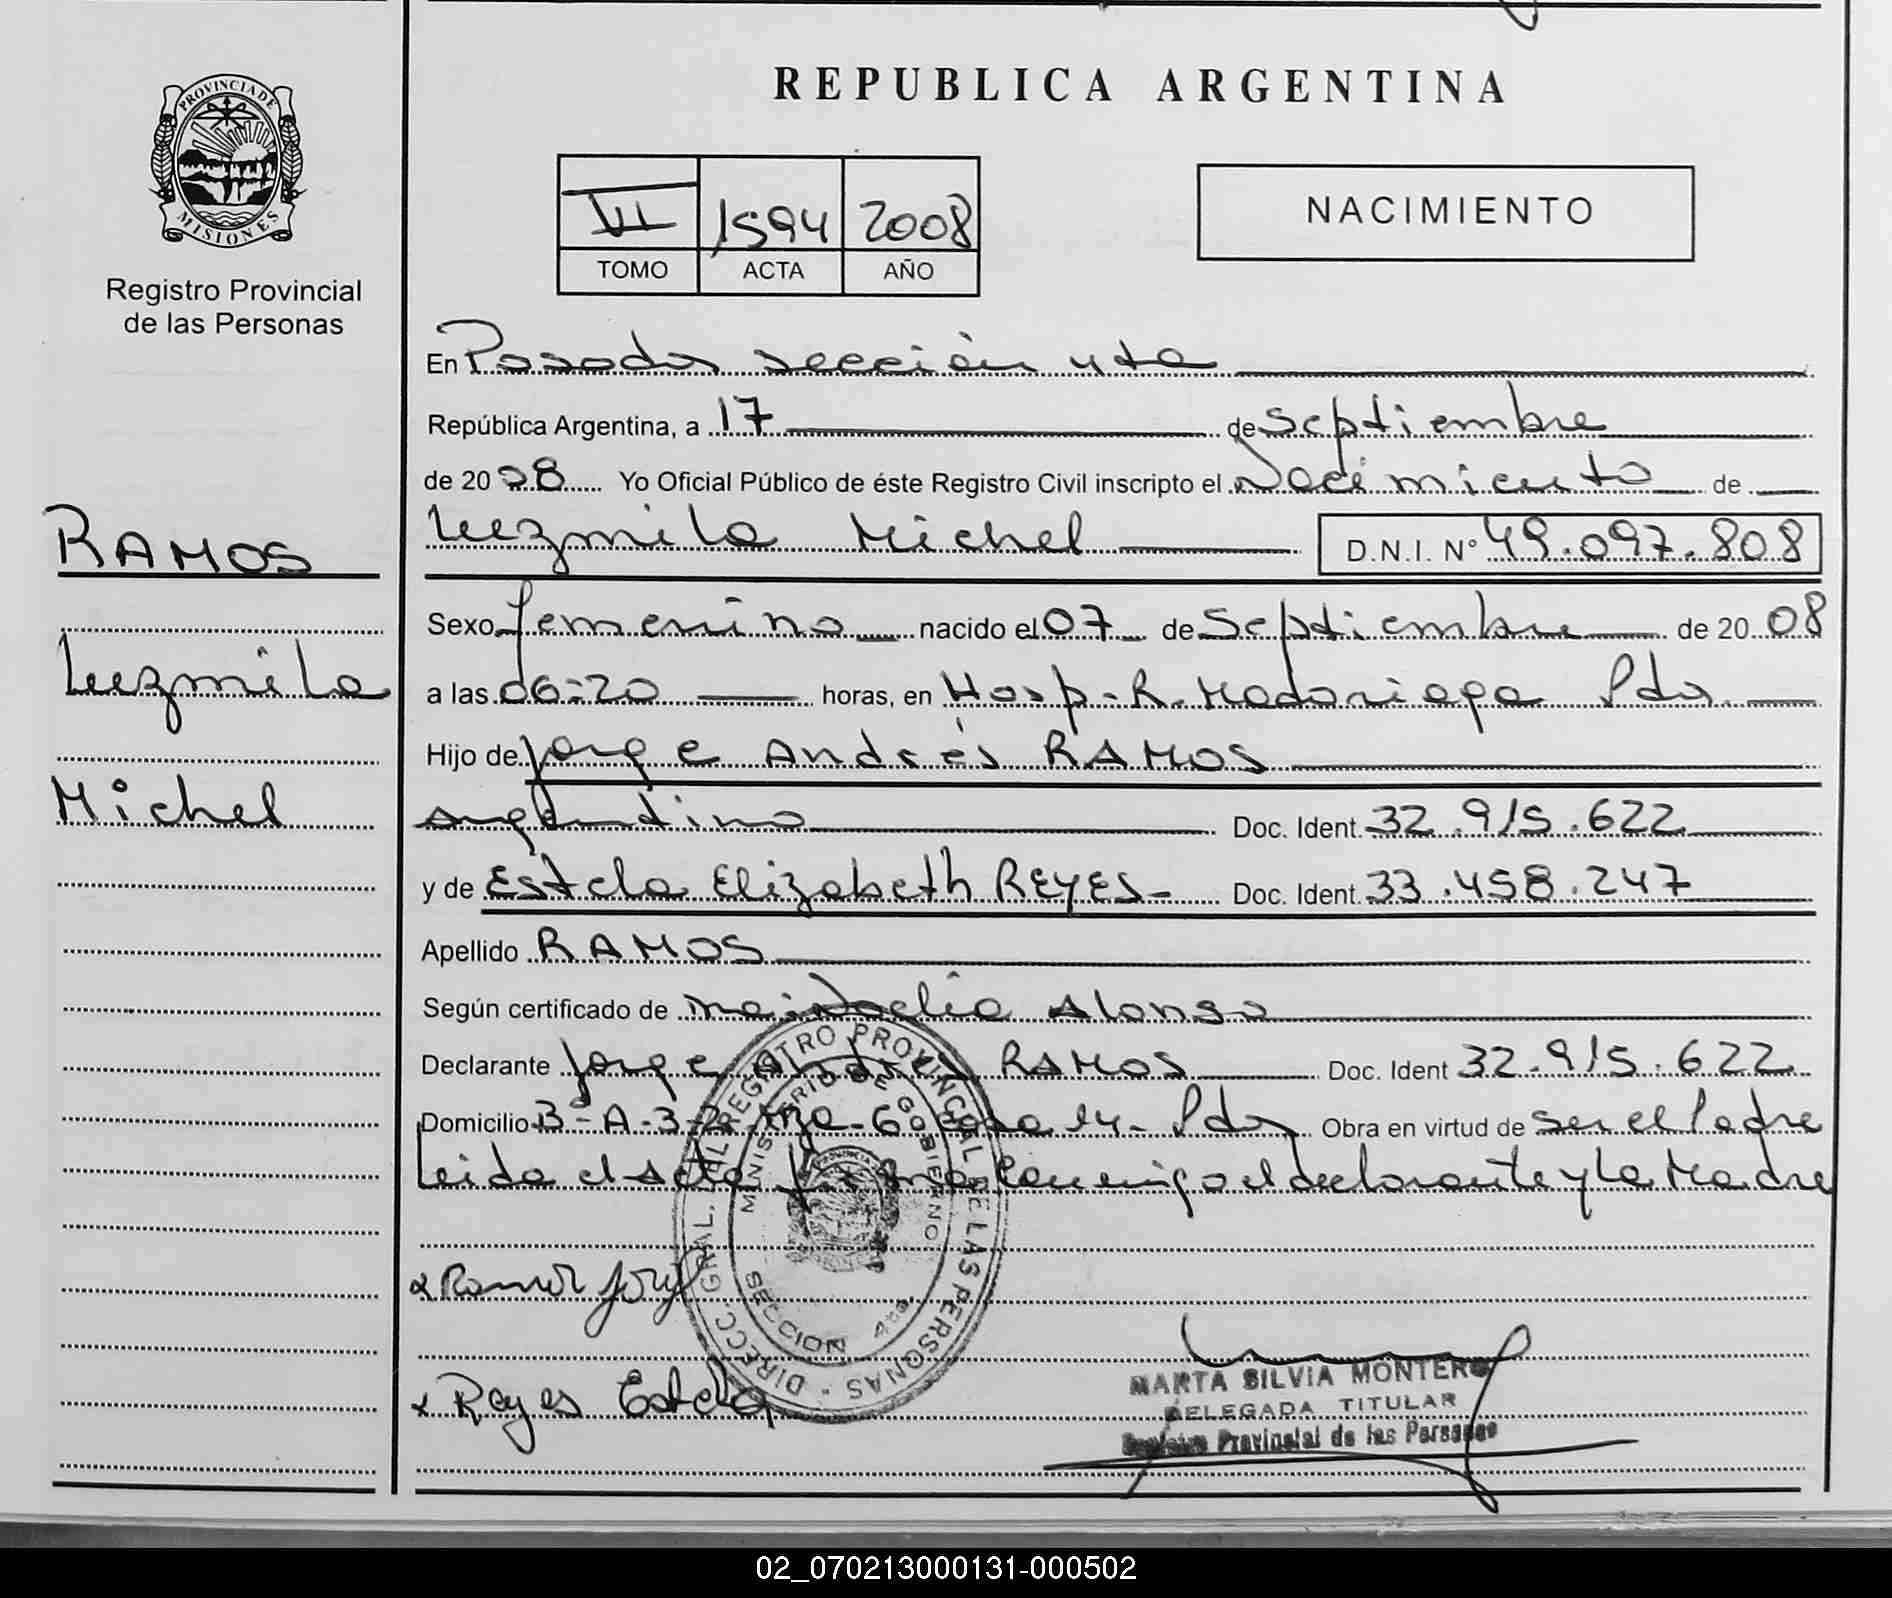 REPUBLICA ARGENTINA
PROVINCIA DE
MISIONES
Registro Provincial
de las Personas
VII 1594 2008
TOMO ACTA AÑO
NACIMIENTO
En Posadas sección 4ta
República Argentina, a 17 de Septiembre
de 20 08 Yo Oficial Público de éste Registro Civil inscripto el Nacimiento de
RAMOS
Luzmila Michel D.N.I. Nº 49.097.808
Sexo femenino nacido el 07 de Septiembre de 20 08
Luzmila
a las 06:20 horas, en Hosp. R. Madariaga Pdas.
Hijo de Jorge Andrés RAMOS
Michel
Argentino Doc. Ident. 32.915.622
y de Estela Elizabeth REYES- Doc. Ident. 33.458.247
Apellido RAMOS
Según certificado de Alonso
Declarante Jorge Andrés RAMOS Doc. Ident 32.915.622
Domicilio Bº-A-3-2- Mza-60 Casa 14- Pdas Obra en virtud de ser el Padre
Leida el Acta firma conmigo el declarante y la Madre
DIRECC. GRAL. DEL REGISTRO PROVINCIAL DE LAS PERSONAS
MINISTERIO DE GOBIERNO
SECCION 4ta.
x Ramos Jorge
x Reyes Estela
MARTA SILVIA MONTERO
DELEGADA TITULAR
Registro Provincial de las Personas
02_070213000131-000502